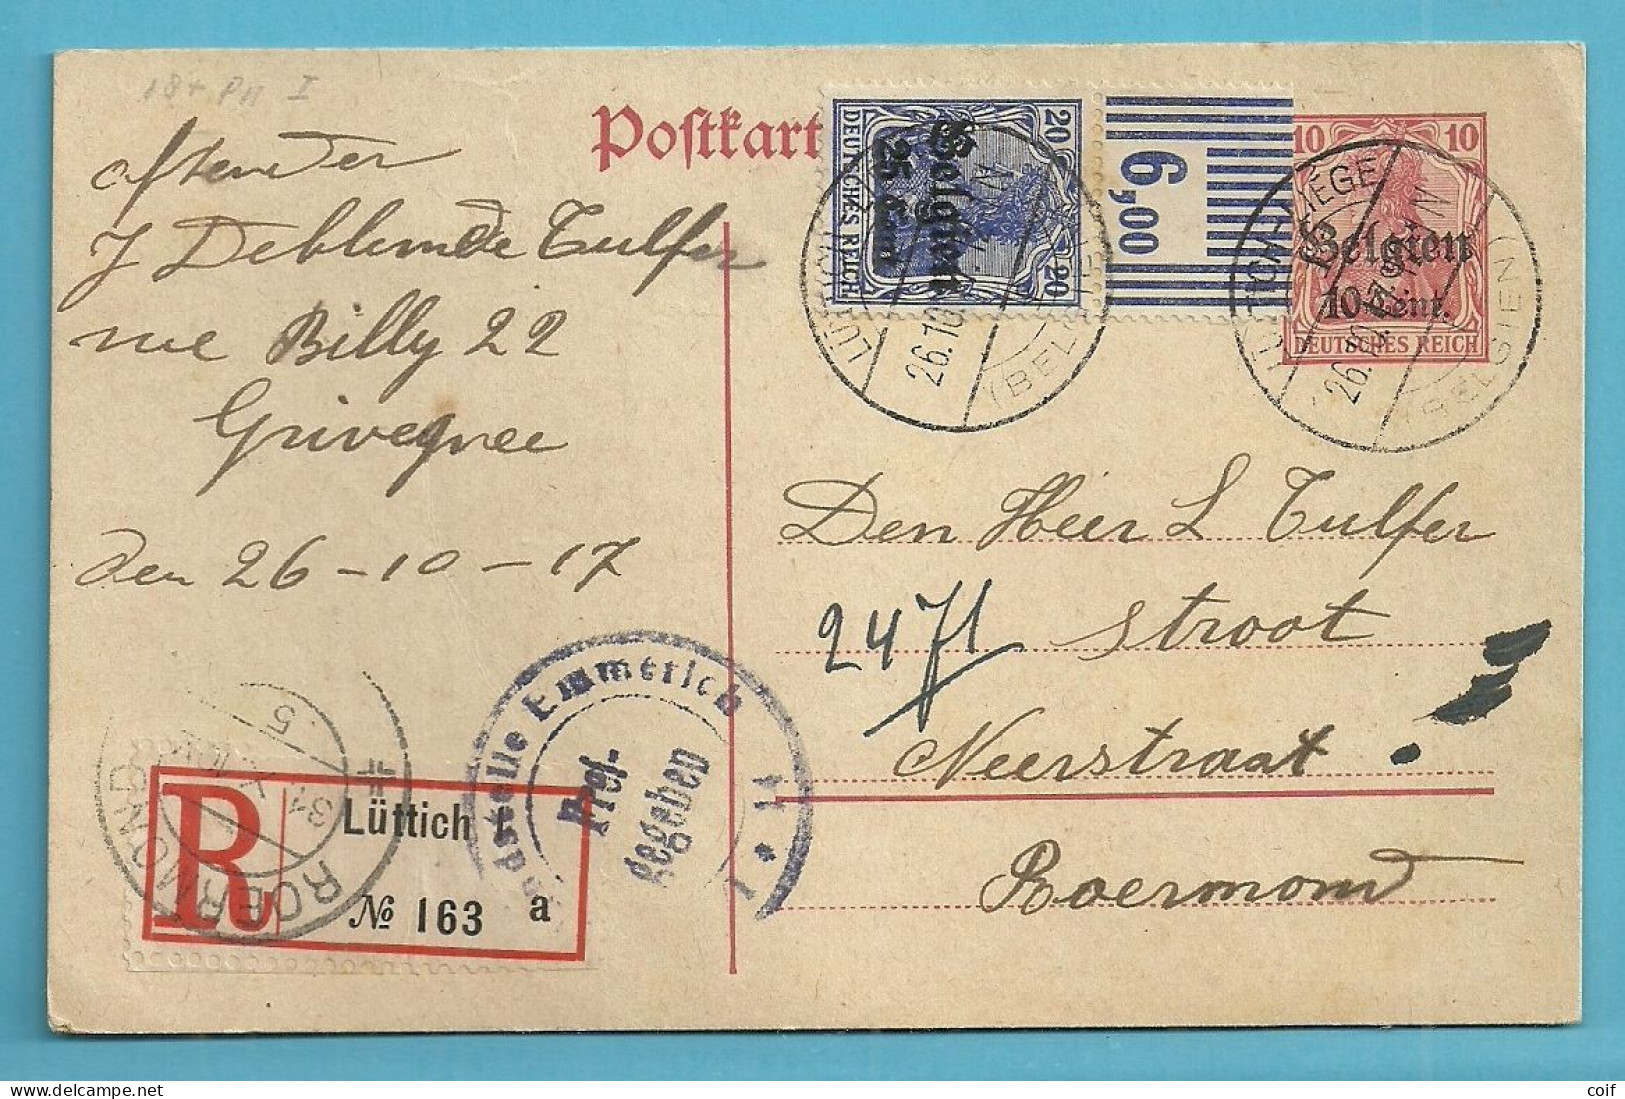 18+ PH I
Postkart
Afzender
J Deblende Tulfer
rue Billy 22
Grivegnee
den 26-10-17
20
20
DEUTSCHES REICH
Belgien
25 Cent.
6,00
10
10
Belgien
10 Cent.
DEUTSCHES REICH
(BELGIEN)
26.10
LÜTTICH (LIÉGE)
(BELGIEN)
26.10
Den Heer L Tulfer
2471
Stroot
Neerstraat
Roermond
Emmerich
Frei-
gegeben
ROERMOND
31
5
R
Lüttich
№ 163 a
coif